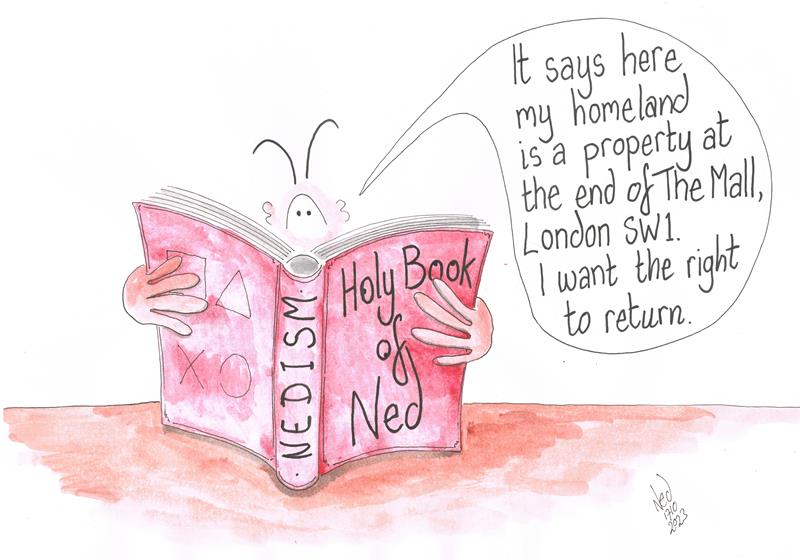 It says here
my homeland
is a property at
the end of The Mall,
London SW1.
I want the right
to return.
NEDISM
Holy Book
of
Ned
Ned
1710
2023